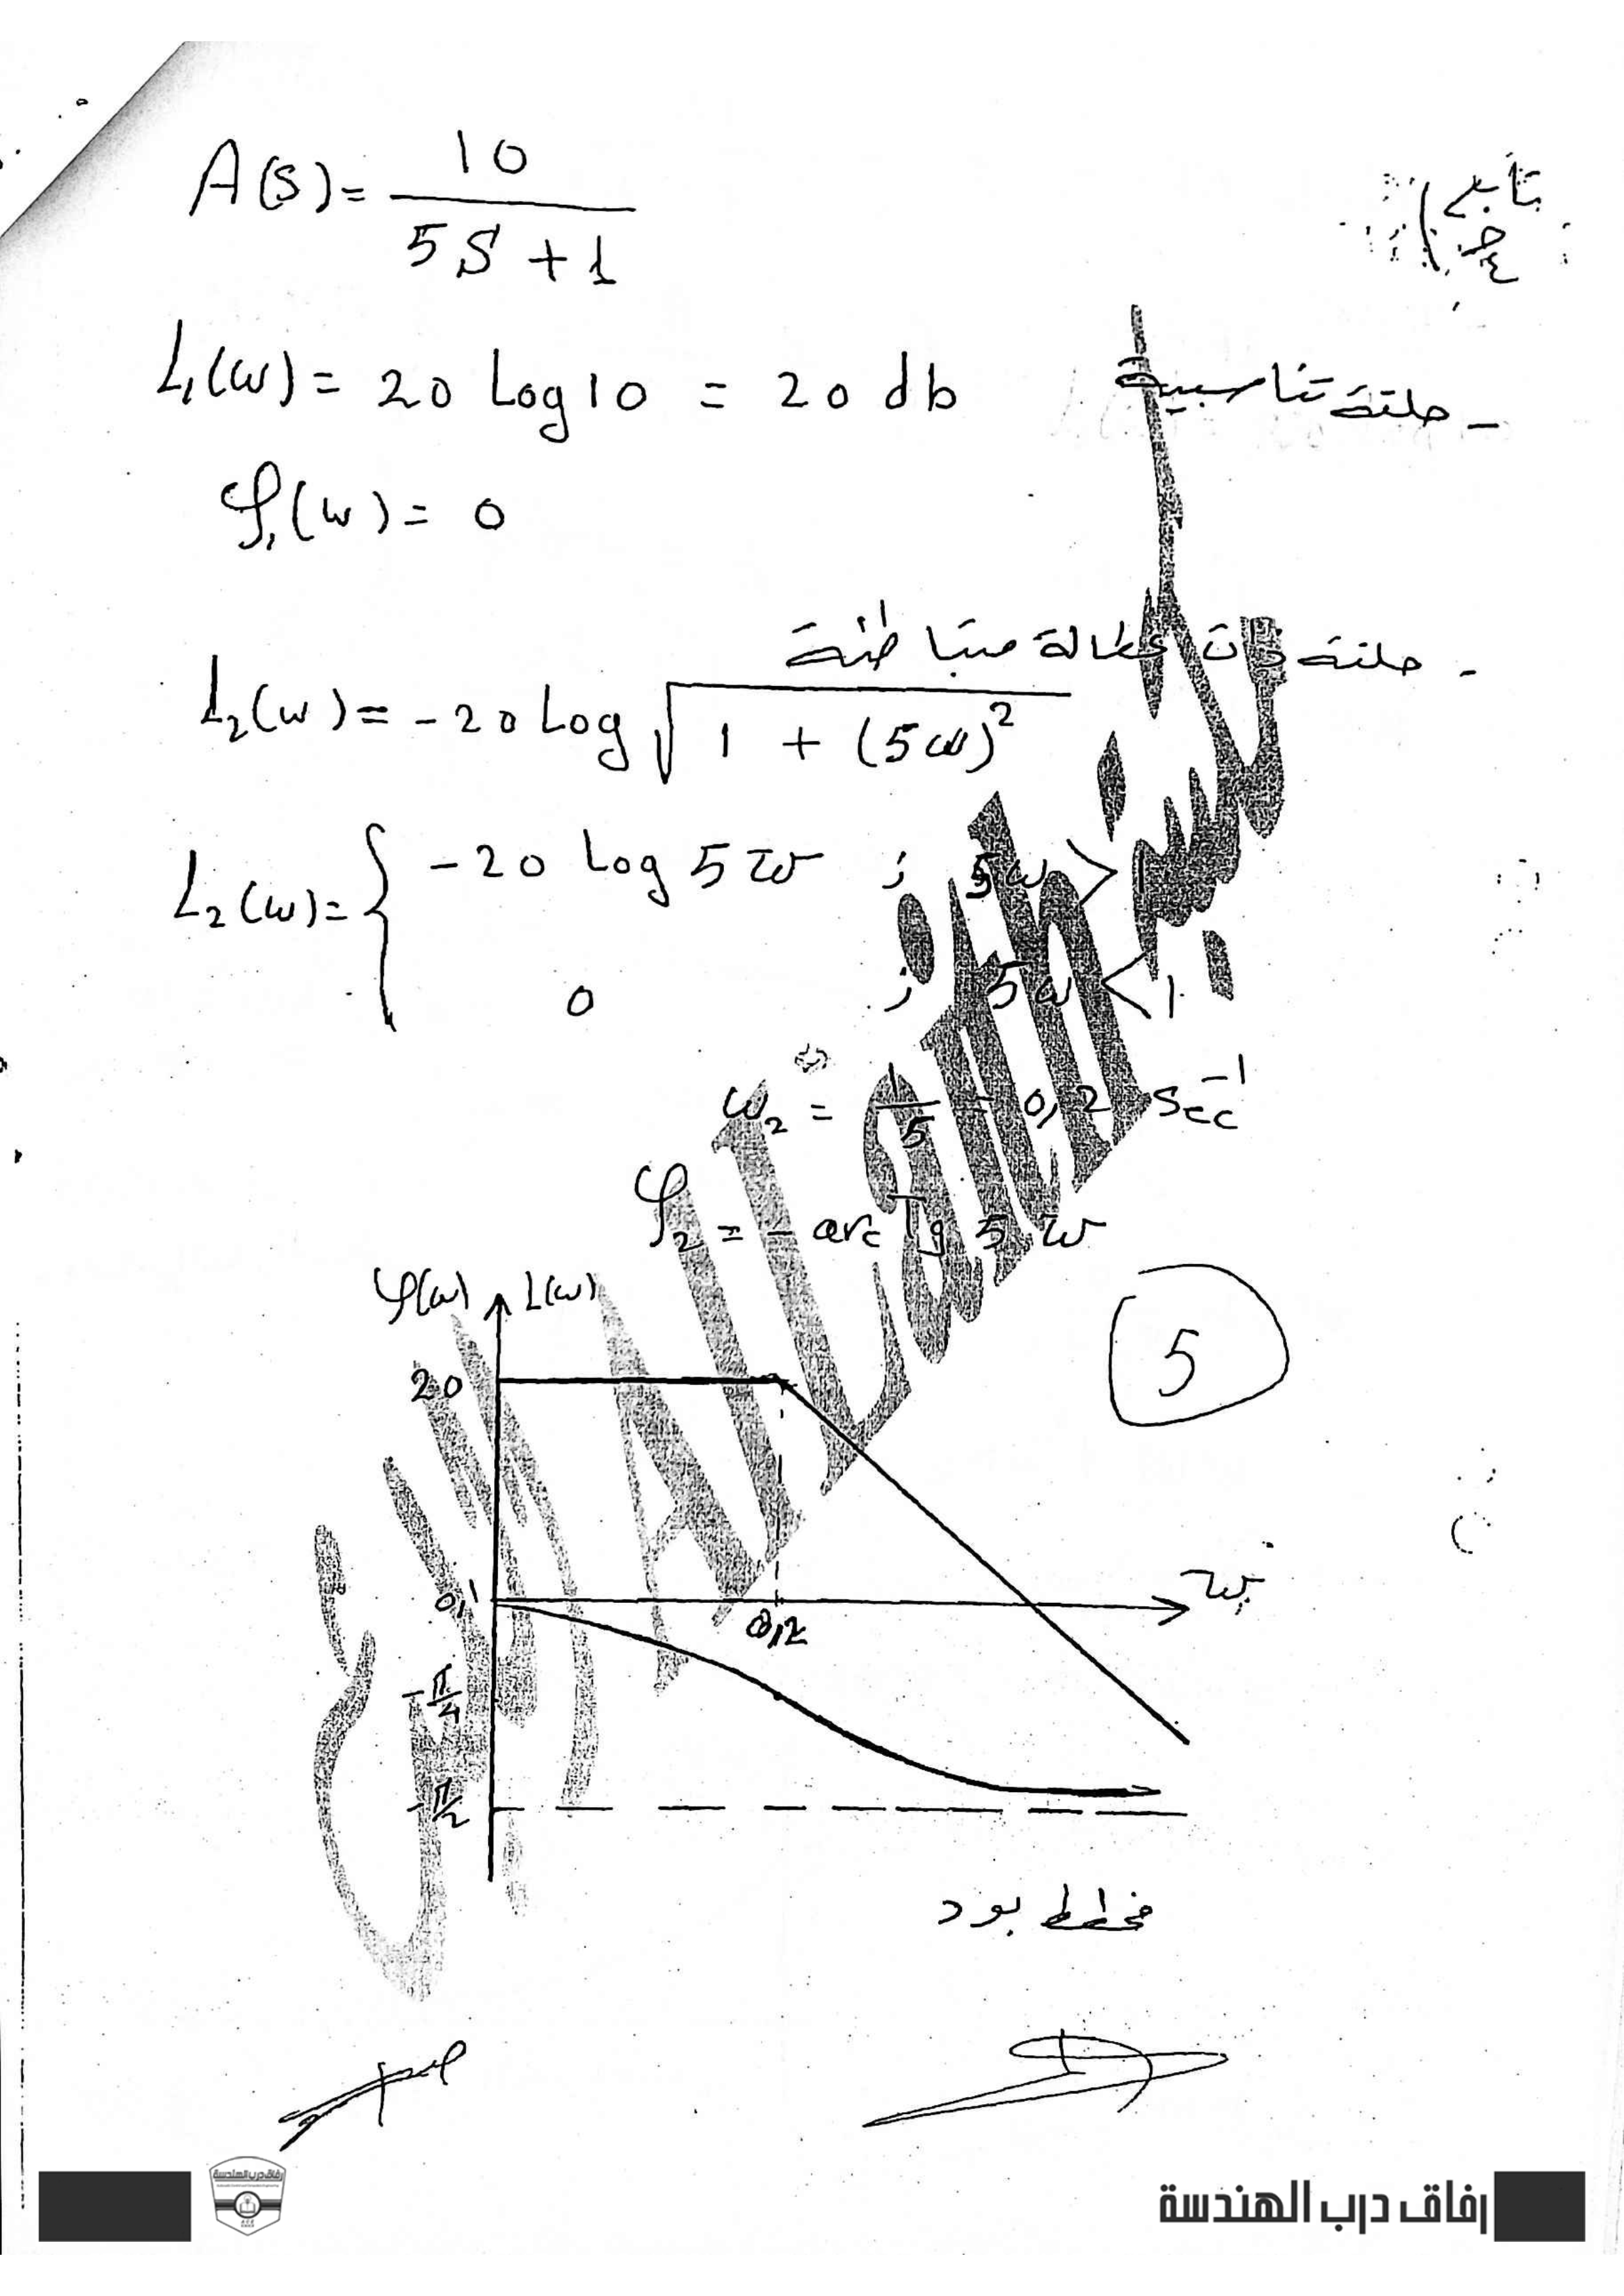 تابع
ج٤
A(s) = 10 / (5S + 1)
- حلقة تناسبية
L₁(w) = 20 Log 10 = 20 db
φ₁(w) = 0
- حلقة ذات عطالة متباطئة
L₂(w) = -20 Log √(1 + (5w)²)
L₂(w) = { -20 Log 5w ; 5w > 1
0 ; 5w < 1
w₂ = 1/5 = 0,2 Sec⁻¹
φ₂ = - arc tg 5 w
φ(w) L(w)
5
20
0,1
0,2
w
-π/4
-π/2
مخطط بود
رفاق درب الهندسة